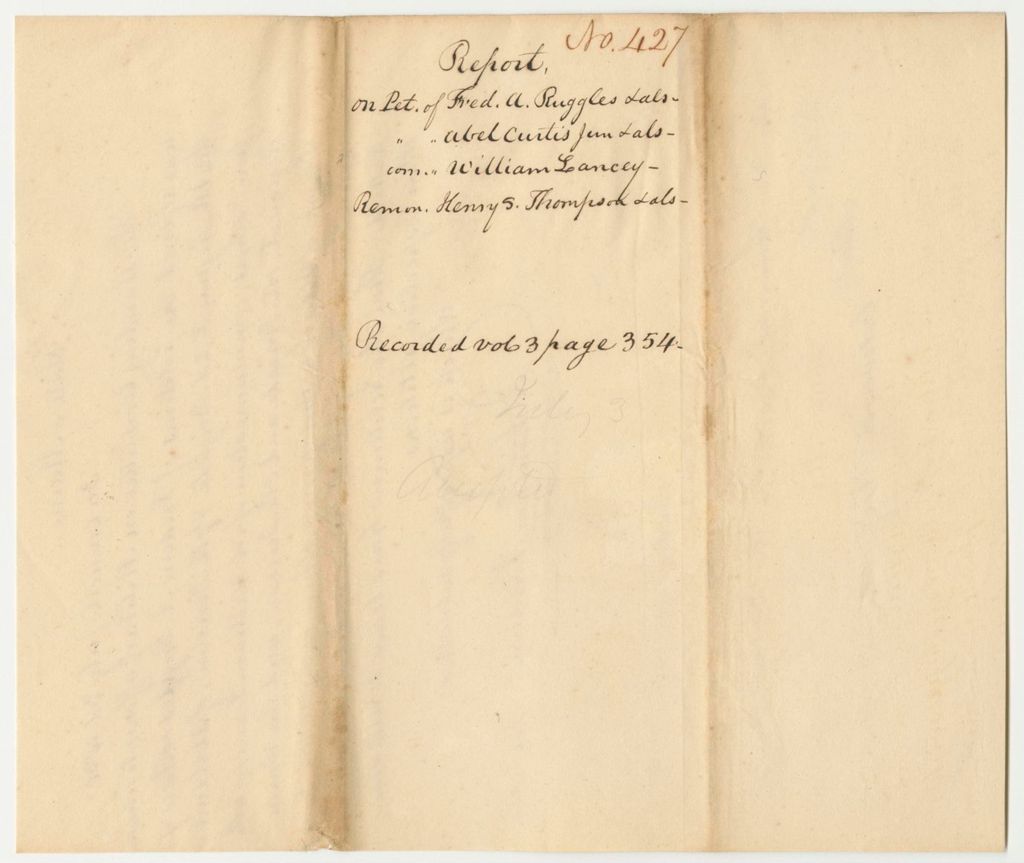 No. 427
Report,
on Pet. of Fred. A. Ruggles & als-
" " Abel Curtis Jun & als-
com. " William Lancey-
Remon. Henry S. Thompson & als-
Recorded vol 3 page 354-
July 3
Accepted